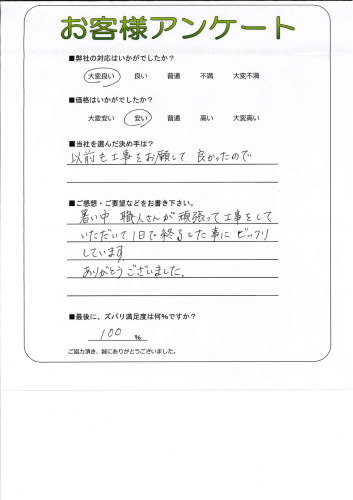 お客様アンケート
■弊社の対応はいかがでしたか?
大変良い 良い 普通 不満 大変不満
■価格はいかがでしたか?
大変安い 安い 普通 高い 大変高い
■当社を選んだ決め手は?
以前も工事をお願して 良かったので
■ご感想・ご要望などをお書き下さい。
暑い中、職人さんが頑張って工事をして
いただいて、1日で終了した事に ビックリ
しています。
ありがとうございました。
■最後に、ズバリ満足度は何%ですか?
100 %
ご協力頂き、誠にありがとうございました。